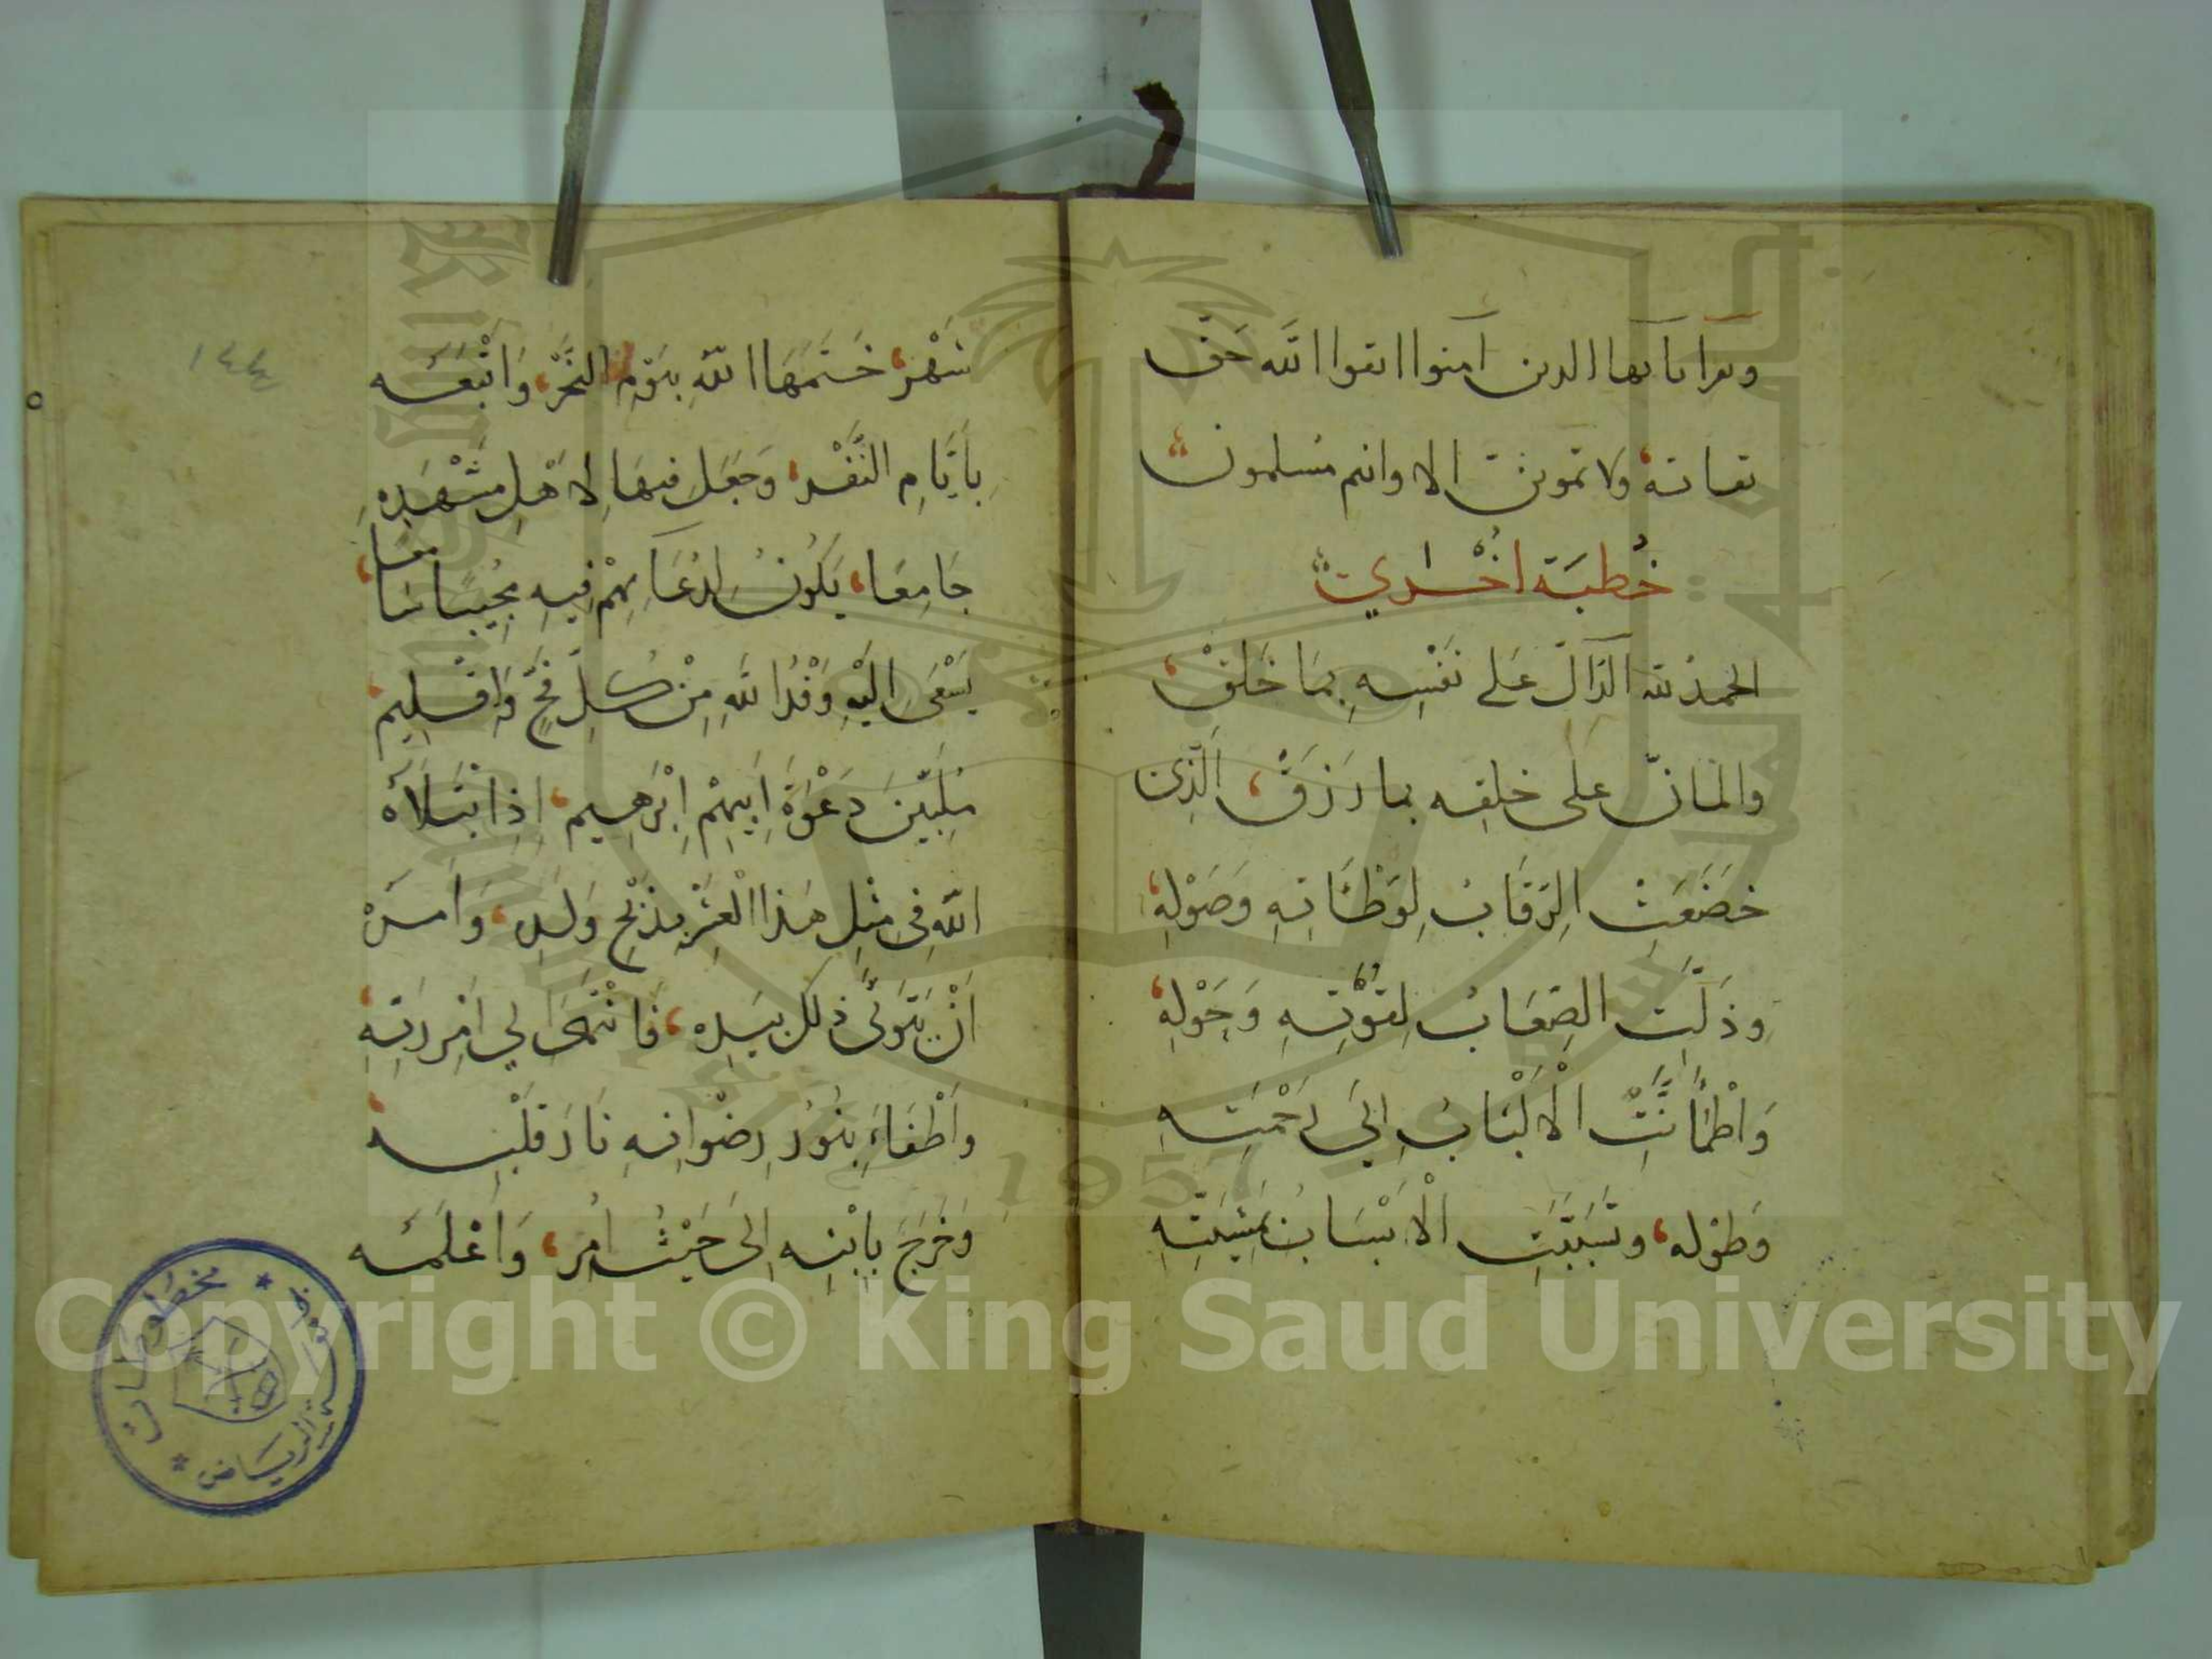 ويقرأ يا أيها الذين آمنوا اتقوا الله حق
تقاته ولا تموتن إلا وأنتم مسلمون
خُطبَة اخْرَي
الحمدُ لله الدَّالّ عَلي نَفْسِهِ بمَا خَلَقْ
والمَانّ على خلقِه بما رَزَقَ، الَّذِي
خَضَعَتِ الرِّقَابُ لِوَطْأَتِهِ وَصَوْلِهِ
وذَلَّتِ الصِّعَابُ لِقُوَّتِهِ وَحَوْلِهِ
وَاطْمَأَنَّتِ الْأَلْبَابُ إِلَى رَحْمَتِهِ
وَطَوْلِه، وتَسَبَّبَتِ الْأَسْبَابُ بمَشِيَّتِهِ
١٤٤
شَهْر، خَتَمَهَا اللهُ بيَوْمِ النَّحْرِ، وَأَتْبَعَه
بِأَيَّامِ النَّفْرِ، وَجَعَل فيهَا لِأَهْلِ مَشْهَدِهِ
جَامِعًا، يَكُونُ لدُعَائِهِمْ فِيهِ مُجِيبًا سَامعًا،
يَسْعَى إِلَيْهِ وَفْدُ اللهِ مِنْ كُلِّ فَجٍّ وَإقْلِيم،
مُلَبِّينَ دَعْوَةَ أَبِيهِمْ إِبْرَهِيم، إِذِ ابْتَلَاهُ
اللهُ في مِثْلِ هَذَا الْعَشْرِ بِذَبْحِ وَلَدِهِ، وَأَمَرَهُ
أَنْ يَتَوَلَّى ذلكَ بيَدِه، فَانْتَهَى إلي أَمْرِ رَبِّهِ،
وأَطْفَاءَ بِنُورُ رِضْوَانِهِ نَارَ قَلْبِه،
وَخَرَجَ بِابْنِهِ إِلَى حَيْثُ أُمِر، وَأَعْلَمَه
مخطوطات
جامعة الرياض
1957
Copyright © King Saud University